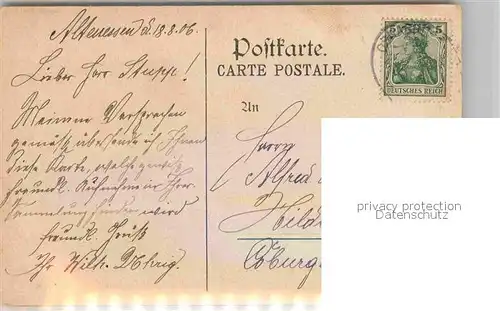 Altenessen d. 18.8.06
Lieber Herr Stupp!
Meinem Versprechen
gemäß übersende ich Ihnen
diese Karte, welche gewiß
freundl. Aufnahme in Ihrer
Sammlung finden wird
Freundl. Gruß
Ihr Wilh.
Postkarte.
CARTE POSTALE.
An
Herrn
Alfred
Coburg
5 5
DEUTSCHES REICH
privacy protection
Datenschutz